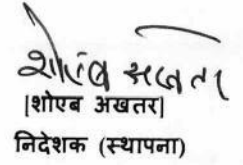 शोएब अखतर
[शोएब अखतर]
निदेशक (स्थापना)